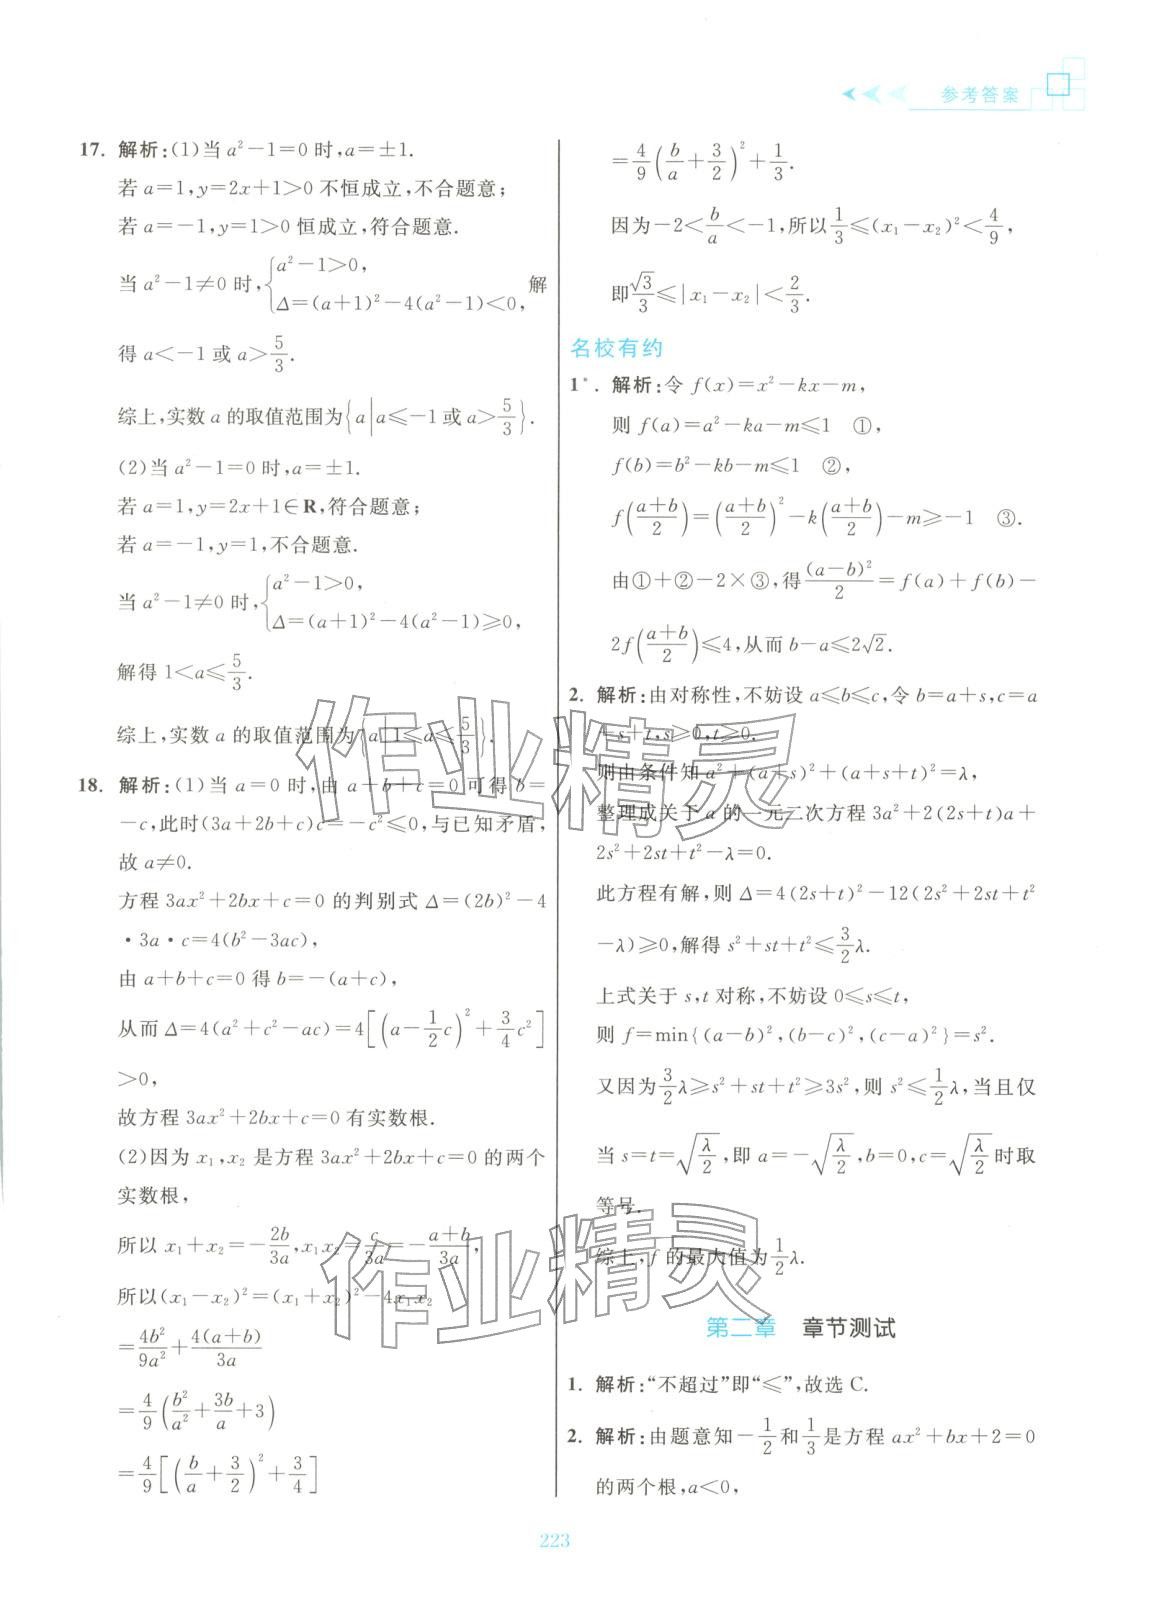 参考答案
17. 解析:(1)当 a²－1＝0 时,a＝±1.
若 a＝1,y＝2x＋1＞0 不恒成立,不合题意;
若 a＝－1,y＝1＞0 恒成立,符合题意.
当 a²－1≠0 时,{a²－1＞0, Δ＝(a＋1)²－4(a²－1)＜0, 解
得 a＜－1 或 a＞5/3.
综上,实数 a 的取值范围为{a|a≤－1 或 a＞5/3}.
(2)当 a²－1＝0 时,a＝±1.
若 a＝1,y＝2x＋1∈R,符合题意;
若 a＝－1,y＝1,不合题意.
当 a²－1≠0 时,{a²－1＞0, Δ＝(a＋1)²－4(a²－1)≥0,
解得 1＜a≤5/3.
综上,实数 a 的取值范围为{a|1≤a≤5/3}.
18. 解析:(1)当 a＝0 时,由 a＋b＋c＝0 可得 b＝
－c,此时(3a＋2b＋c)c＝－c²≤0,与已知矛盾,
故 a≠0.
方程 3ax²＋2bx＋c＝0 的判别式 Δ＝(2b)²－4
·3a·c＝4(b²－3ac),
由 a＋b＋c＝0 得 b＝－(a＋c),
从而 Δ＝4(a²＋c²－ac)＝4[(a－1/2 c)²＋3/4 c²]
＞0,
故方程 3ax²＋2bx＋c＝0 有实数根.
(2)因为 x₁,x₂ 是方程 3ax²＋2bx＋c＝0 的两个
实数根,
所以 x₁＋x₂＝－2b/3a,x₁x₂＝c/3a＝－(a＋b)/3a,
所以(x₁－x₂)²＝(x₁＋x₂)²－4x₁x₂
＝4b²/9a²＋4(a＋b)/3a
＝4/9(b²/a²＋3b/a＋3)
＝4/9[(b/a＋3/2)²＋3/4]
＝4/9(b/a＋3/2)²＋1/3.
因为－2＜b/a＜－1,所以1/3≤(x₁－x₂)²＜4/9,
即√3/3≤|x₁－x₂|＜2/3.
名校有约
1*. 解析:令 f(x)＝x²－kx－m,
则 f(a)＝a²－ka－m≤1　①,
f(b)＝b²－kb－m≤1　②,
f((a＋b)/2)＝((a＋b)/2)²－k((a＋b)/2)－m≥－1　③.
由①＋②－2×③,得(a－b)²/2＝f(a)＋f(b)－
2f((a＋b)/2)≤4,从而 b－a≤2√2.
2. 解析:由对称性,不妨设 a≤b≤c,令 b＝a＋s,c＝a
＋s＋t,s≥0,t≥0.
则由条件知 a²＋(a＋s)²＋(a＋s＋t)²＝λ,
整理成关于 a 的一元二次方程 3a²＋2(2s＋t)a＋
2s²＋2st＋t²－λ＝0.
此方程有解,则 Δ＝4(2s＋t)²－12(2s²＋2st＋t²
－λ)≥0,解得 s²＋st＋t²≤3/2 λ.
上式关于 s,t 对称,不妨设 0≤s≤t,
则 f＝min{(a－b)²,(b－c)²,(c－a)²}＝s².
又因为3/2 λ≥s²＋st＋t²≥3s²,则 s²≤1/2 λ,当且仅
当 s＝t＝√(λ/2),即 a＝－√(λ/2),b＝0,c＝√(λ/2)时取
等号.
综上,f 的最大值为1/2 λ.
第二章　章节测试
1. 解析:“不超过”即“≤”,故选 C.
2. 解析:由题意知－1/2和1/3是方程 ax²＋bx＋2＝0
的两个根,a＜0,
223
作业精灵
作业精灵